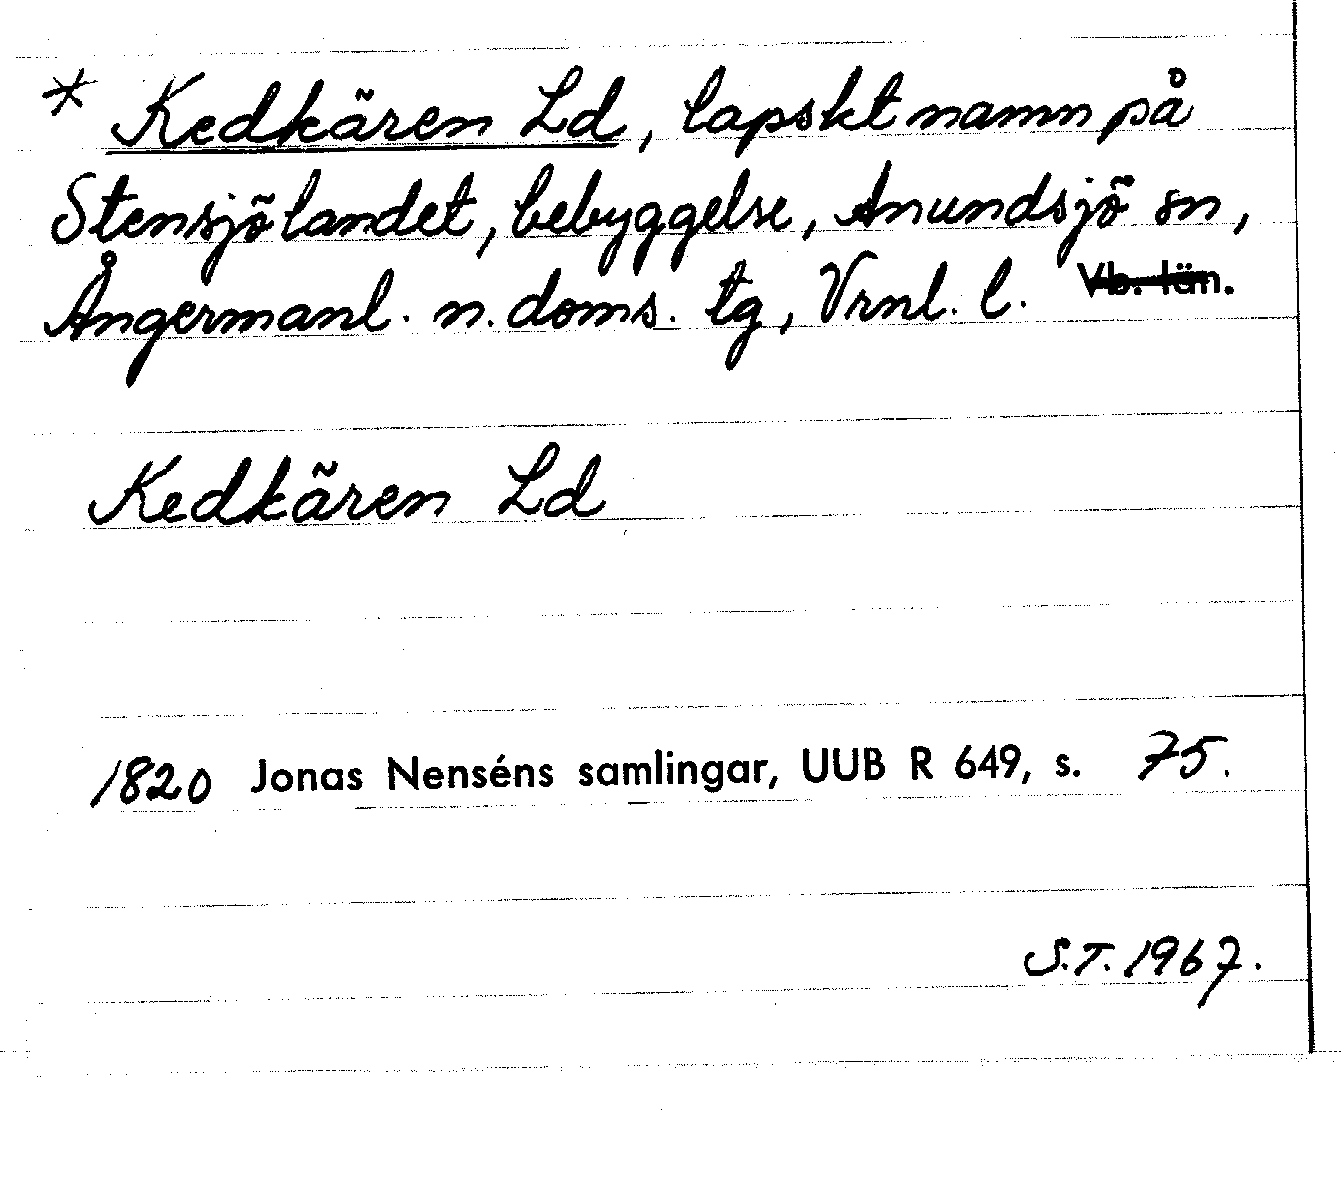 * Kedkären Ld, lapskt namn på
Stensjölandet, bebyggelse, Anundsjö sn,
Ångermanl. n. doms. tg, Vrnl. l. Vb. län.
Kedkären Ld
1820 Jonas Nenséns samlingar, UUB R 649, s. 75.
S.T. 1967.